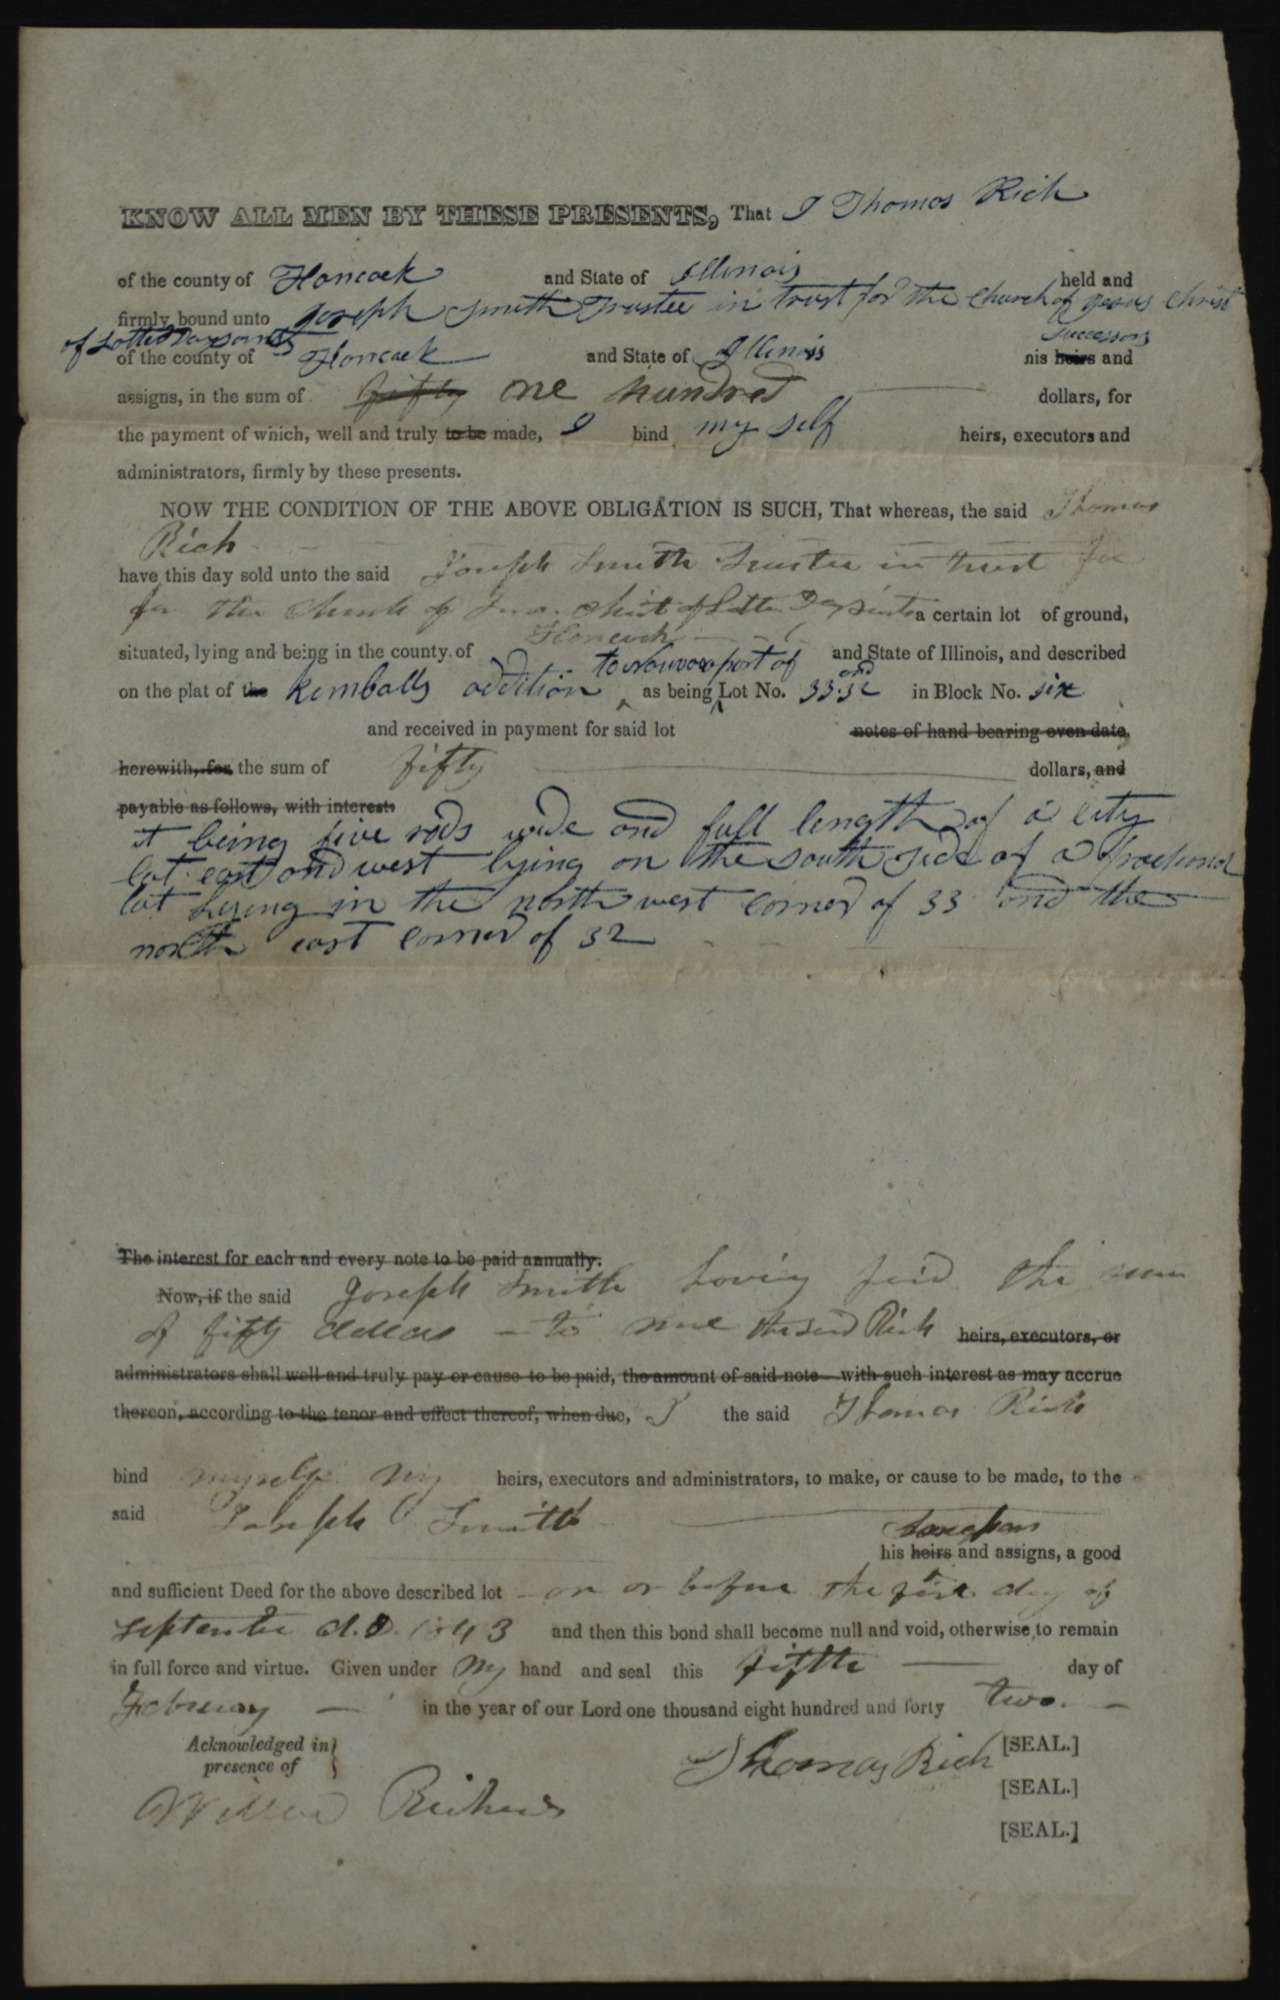 KNOW ALL MEN BY THESE PRESENTS, That I Thomas Rich
of the county of Hancock and State of Illinois held and
firmly bound unto Joseph Smith Trustee in trust for the Church of Jesus Christ
of Latter Day Saints successors
of the county of Hancock and State of Illinois his heirs and
assigns, in the sum of fifty one hundred dollars, for
the payment of which, well and truly to be made, I bind my self heirs, executors and
administrators, firmly by these presents.
NOW THE CONDITION OF THE ABOVE OBLIGATION IS SUCH, That whereas, the said Thomas
Rich
have this day sold unto the said Joseph Smith Trustee in trust for
for the Church of Christ of Latter Day Saints a certain lot of ground,
situated, lying and being in the county of Hancock and State of Illinois, and described
to Nauvoo part of and
on the plat of the Kimballs addition as being Lot No. 33 32 in Block No. six
and received in payment for said lot notes of hand bearing even date,
herewith, for the sum of fifty dollars, and
payable as follows, with interest:
it being five rods wide and full length of a city
lot east and west lying on the south side of a fractional
lot lying in the north west corner of 33 and the
north east corner of 32
The interest for each and every note to be paid annually.
Now, if the said Joseph Smith having paid the sum
of fifty dollars to me the said Rich heirs, executors, or
administrators shall well and truly pay or cause to be paid, the amount of said note with such interest as may accrue
thereon, according to the tenor and effect thereof, when due, I the said Thomas Rich
bind myself my heirs, executors and administrators, to make, or cause to be made, to the
said Joseph Smith
his heirs and assigns, a good
and sufficient Deed for the above described lot on or before the first day of
September A.D. 1843 and then this bond shall become null and void, otherwise to remain
in full force and virtue. Given under my hand and seal this fifth day of
February in the year of our Lord one thousand eight hundred and forty two.
Acknowledged in presence of } Thomas Rich [SEAL.]
[SEAL.]
Willard Richards [SEAL.]